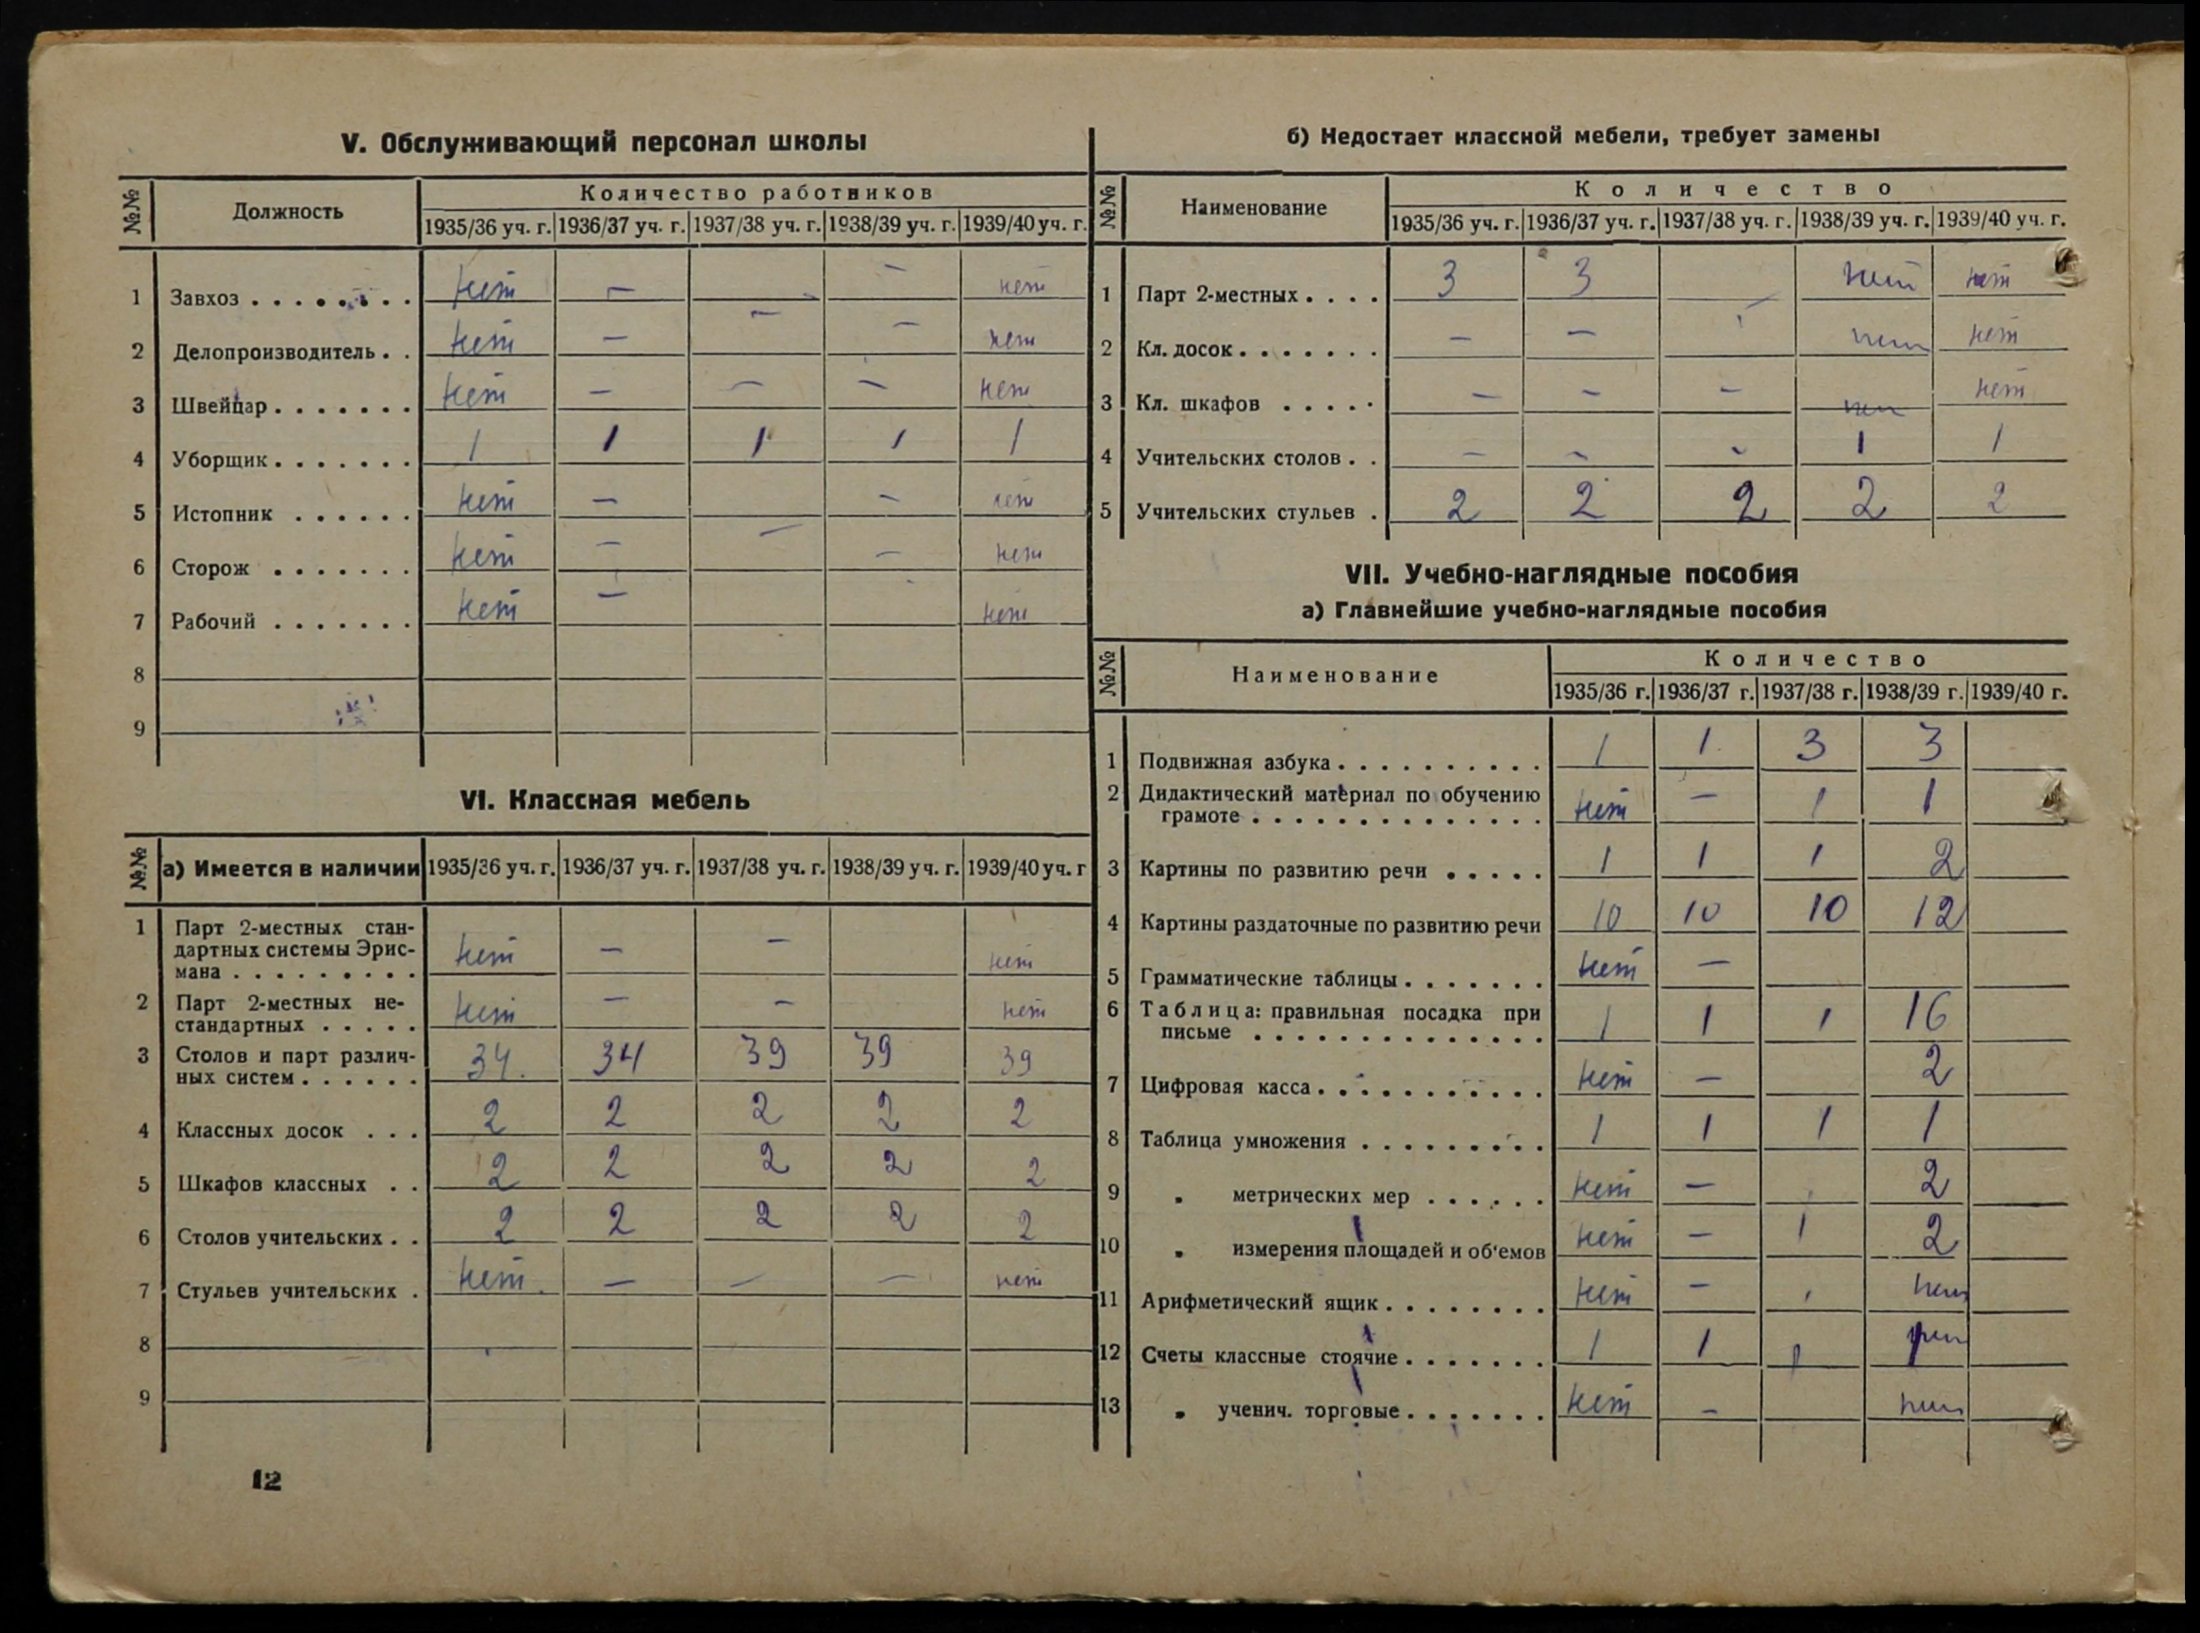 V. Обслуживающий персонал школы
№№ Должность Количество работников
1935/36 уч. г. 1936/37 уч. г. 1937/38 уч. г. 1938/39 уч. г. 1939/40 уч. г.
1 Завхоз . . . . . . . . нет — — нет
2 Делопроизводитель . . нет — — — нет
3 Швейцар . . . . . . . нет — — — нет
4 Уборщик . . . . . . . 1 1 1 1 1
5 Истопник . . . . . . нет — — нет
6 Сторож . . . . . . . нет — — — нет
7 Рабочий . . . . . . . нет — нет
8
9
VI. Классная мебель
№№ а) Имеется в наличии 1935/36 уч. г. 1936/37 уч. г. 1937/38 уч. г. 1938/39 уч. г. 1939/40 уч. г
1 Парт 2-местных стан-
дартных системы Эрис-
мана . . . . . . . . . нет — — нет
2 Парт 2-местных не-
стандартных . . . . . нет — — нет
3 Столов и парт различ-
ных систем . . . . . . 34. 34 39 39 39
4 Классных досок . . . 2 2 2 2 2
5 Шкафов классных . . 2 2 2 2 2
6 Столов учительских . . 2 2 2 2 2
7 Стульев учительских . нет — — — нет
8
9
12
б) Недостает классной мебели, требует замены
№№ Наименование Количество
1935/36 уч. г. 1936/37 уч. г. 1937/38 уч. г. 1938/39 уч. г. 1939/40 уч. г.
1 Парт 2-местных . . . . 3 3 — нет нет
2 Кл. досок . . . . . . . — — нет нет
3 Кл. шкафов . . . . . — — — нет нет
4 Учительских столов . . — — — 1 1
5 Учительских стульев . 2 2 2 2 2
VII. Учебно-наглядные пособия
а) Главнейшие учебно-наглядные пособия
№№ Наименование Количество
1935/36 г. 1936/37 г. 1937/38 г. 1938/39 г. 1939/40 г.
1 Подвижная азбука . . . . . . . . . . 1 1 3 3
2 Дидактический материал по обучению
грамоте . . . . . . . . . . . . . . нет — 1 1
3 Картины по развитию речи . . . . . 1 1 1 2
4 Картины раздаточные по развитию речи 10 10 10 12
5 Грамматические таблицы . . . . . . . нет —
6 Таблица: правильная посадка при
письме . . . . . . . . . . . . . . 1 1 1 16
7 Цифровая касса . . . . . . . . . . . нет — 2
8 Таблица умножения . . . . . . . . . 1 1 1 1
9 „ метрических мер . . . . . . нет — 2
10 „ измерения площадей и об'емов нет — 1 2
11 Арифметический ящик . . . . . . . . нет — нет
12 Счеты классные стоячие . . . . . . . 1 1 нет
13 „ ученич. торговые . . . . . . . нет — нет